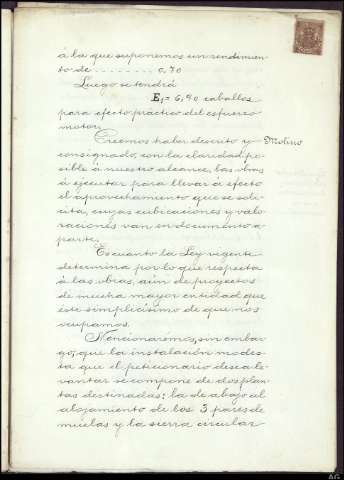 á la que suponemos un rendimien-
to de . . . . . . . . 0,70
Luego se tendrá
E₁= 6,90 caballos
para efecto práctico del esfuerzo
motor.
Creemos haber descrito y
Molino
consignado, con la claridad po-
sible á nuestro alcance, las obras
á ejecutar para llevar á efecto
el aprovechamiento que se soli-
cita, cuyas cubicaciones y valo-
raciones van en documento á
parte.
Es cuanto la Ley vigente
determina por lo que respecta
á las obras, aún de proyectos
de mucha mayor entidad que
este simplicísimo de que nos
ocupamos.
Mencionarémos, sin embar-
go, que la instalación modes-
ta que el peticionario desea le-
vantar se compone de dos plan-
tas destinadas: la de abajo al
alojamiento de los 3 pares de
muelas y la sierra circular